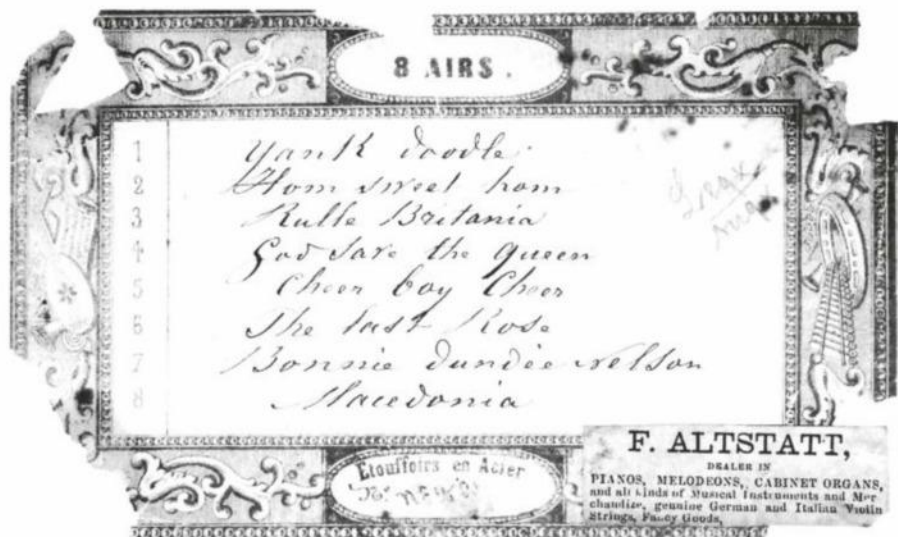 8 AIRS.
1 Yank doodle
2 Hom sweet hom
3 Rulle Britania
4 God save the queen
5 Cheer boy Cheer
6 The last Rose
7 Bonnie dundee Nelson
8 Macedonia
Etouffoirs en Acier
F. ALTSTATT,
DEALER IN
PIANOS, MELODEONS, CABINET ORGANS,
and all kinds of Musical Instruments and Mer-
chandize, genuine German and Italian Violin
Strings, Fancy Goods,